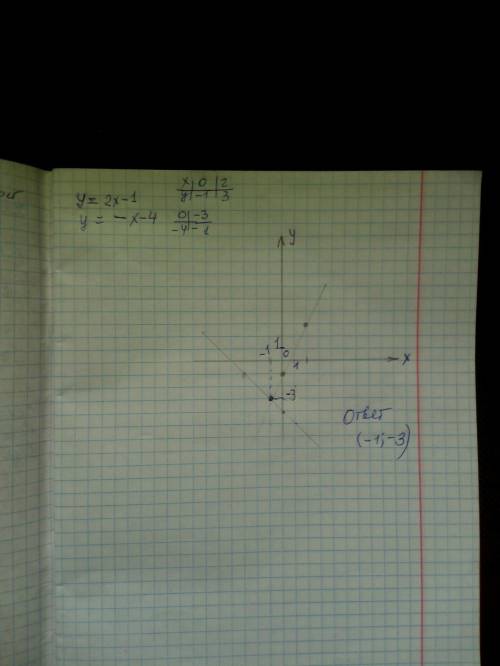 y = 2x-1
x 0 2
y -1 3
y = -x-4
0 -3
-4 -1
y
1
-1 0
1
x
-3
Ответ
(-1;-3)